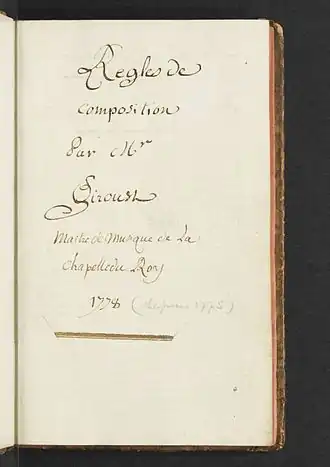 Regles de
Composition
Par Mr
Giroust
Maitre de Musique de La
Chapelle du Roy
1778 (depuis 1775)